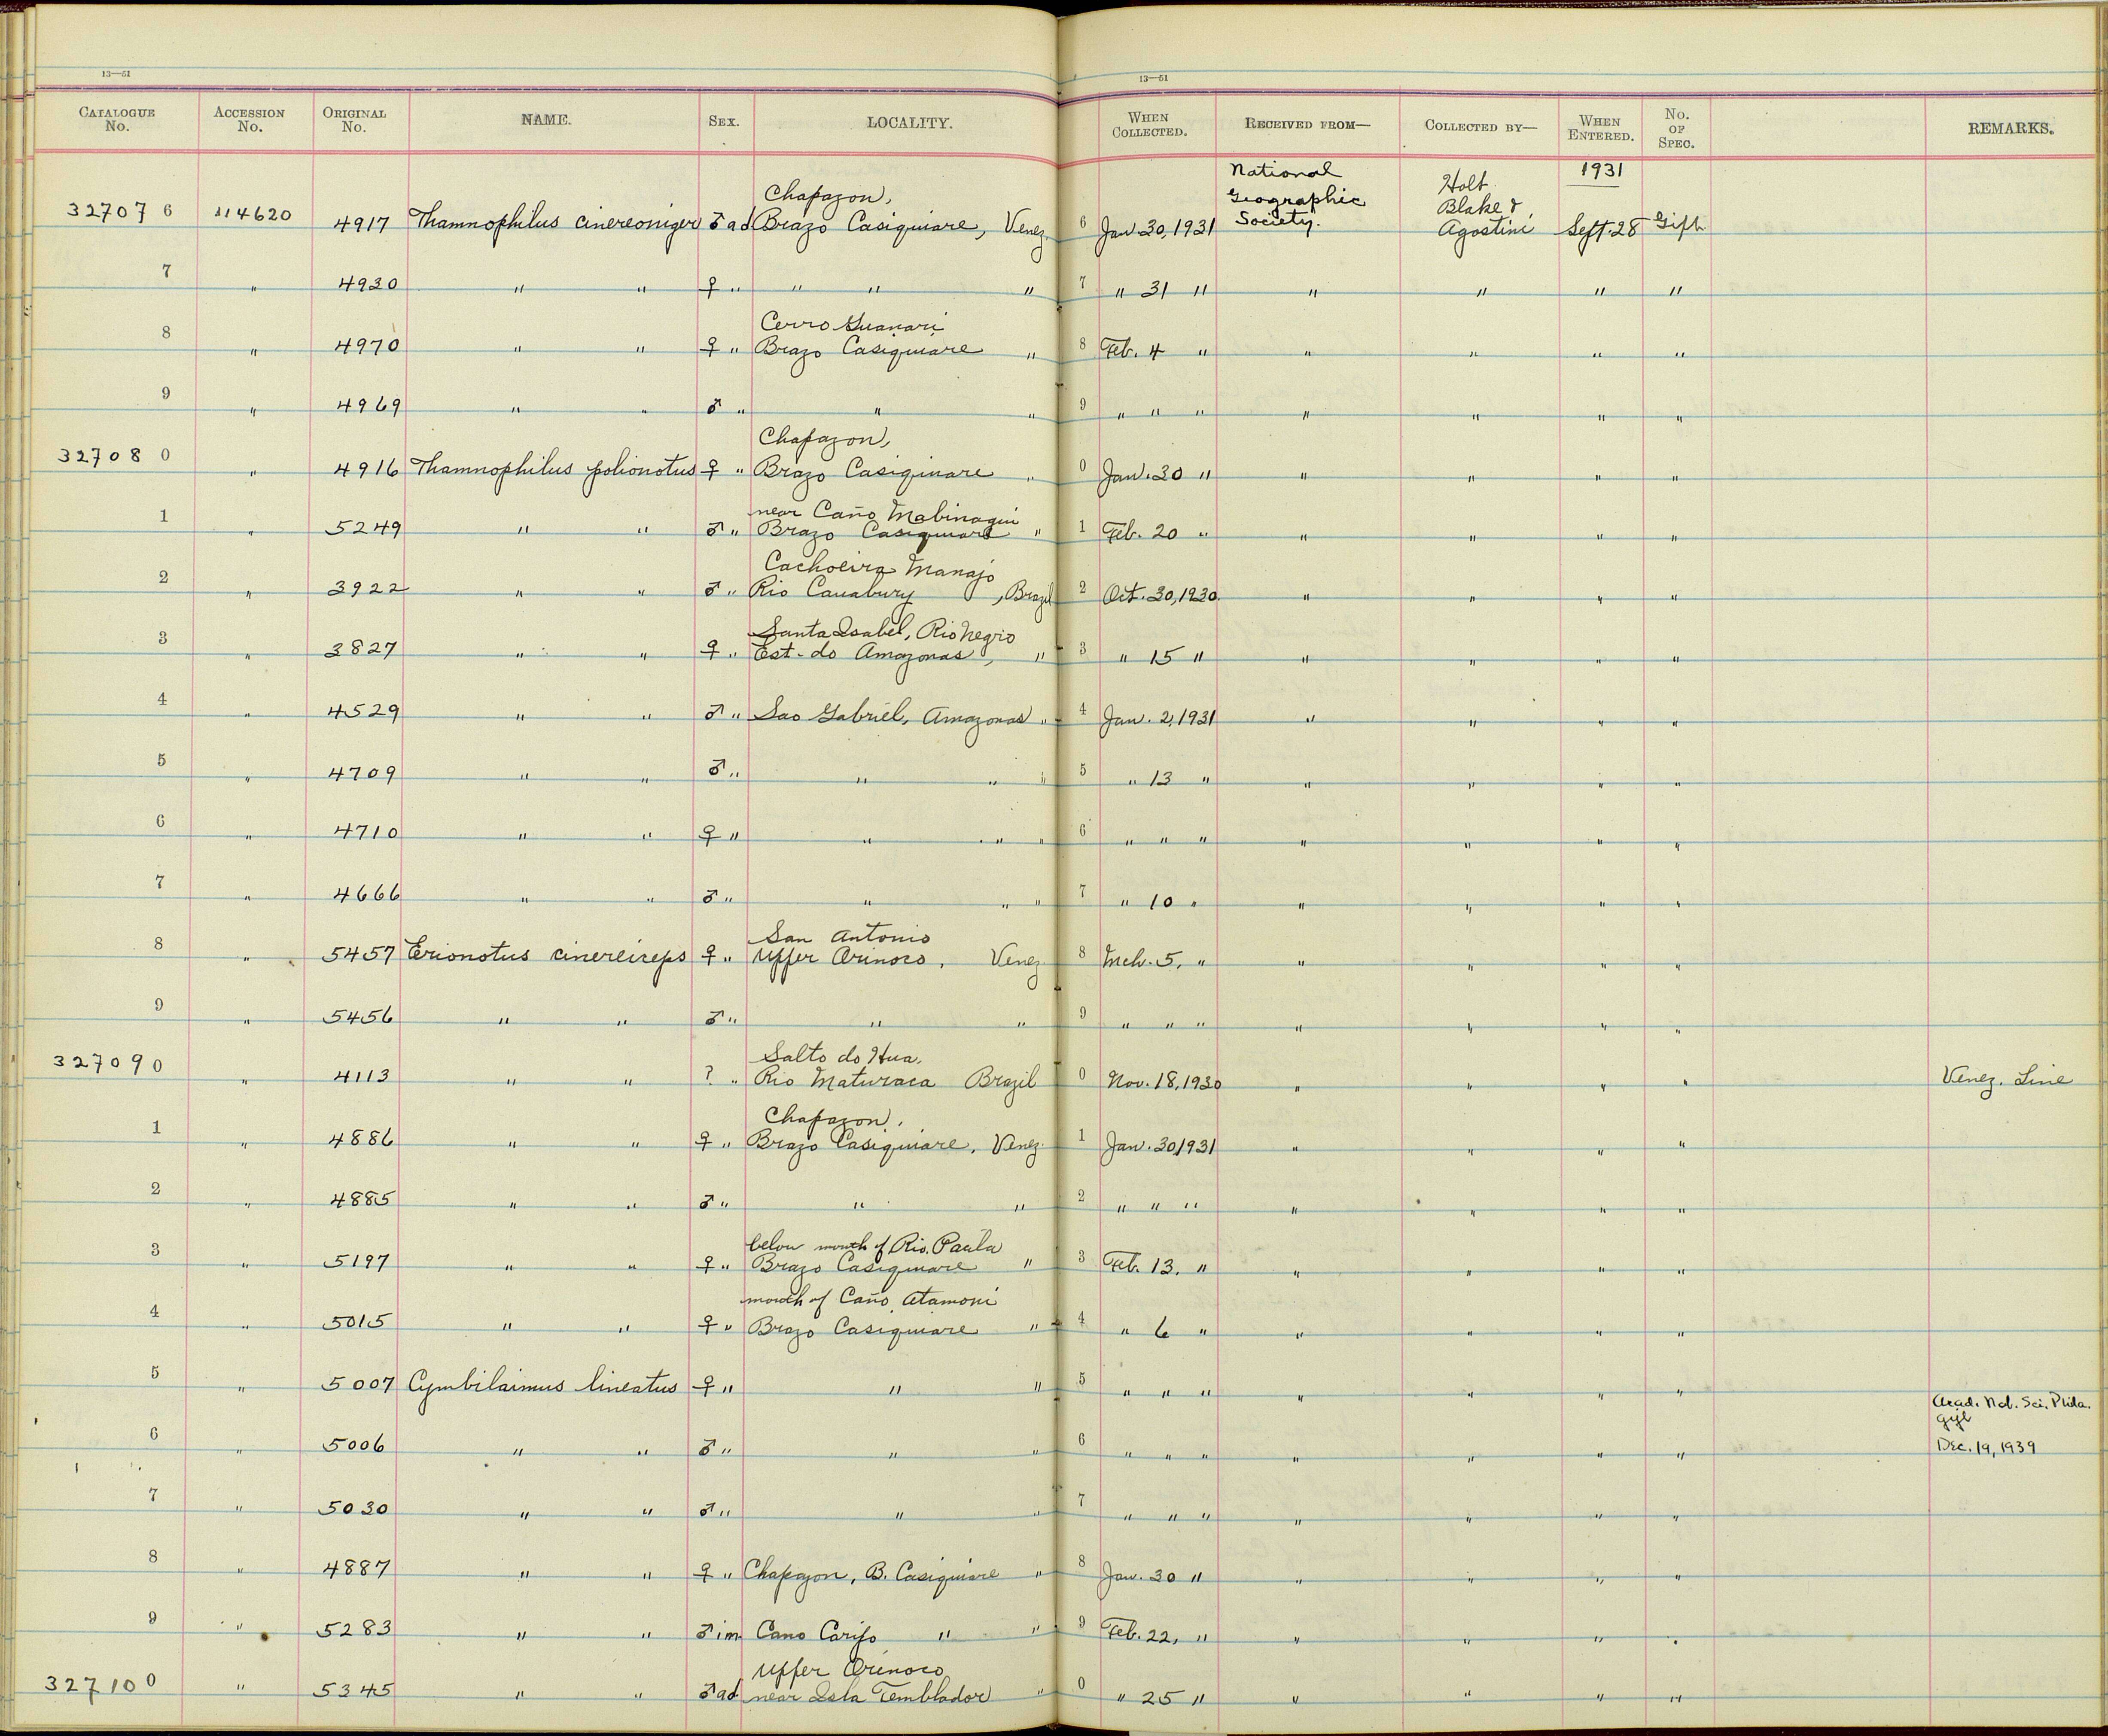 13—51 13—51
CATALOGUE No. ACCESSION No. ORIGINAL No. NAME. SEX. LOCALITY. WHEN COLLECTED. RECEIVED FROM— COLLECTED BY— WHEN ENTERED. No. OF SPEC. REMARKS.
National 1931
Chapazon, Geographic Holt
Blake &
327076 114620 4917 Thamnophilus cinereoniger ♂ ad Brazo Casiquiare, Venez. 6 Jan. 30, 1931 Society. Agostini Sept. 28 Gift
7 " 4930 " " ♀ " " " " 7 " 31 " " " " "
Cerro Guanari
8 " 4970 " " ♀ " Brazo Casiquiare " 8 Feb. 4 " " " " "
9 " 4969 " " ♂ " " " 9 " " " " " " "
Chapazon,
327080 " 4916 Thamnophilus polionotus ♀ " Brazo Casiquiare " 0 Jan. 30 " " " " "
near Caño Mabinaqui
1 " 5249 " " ♂ " Brazo Casiquiare " 1 Feb. 20 " " " " "
Cachoeira Manajo
2 " 3922 " " ♂ " Rio Cauabury, Brazil 2 Oct. 30, 1930. " " " "
Santa Isabel, Rio Negro
3 " 3827 " " ♀ " Est. do Amazonas, " 3 " 15 " " " " "
4 " 4529 " " ♂ " Sao Gabriel, Amazonas " 4 Jan. 2, 1931 " " " "
5 " 4709 " " ♂ " " " " 5 " 13 " " " " "
6 " 4710 " " ♀ " " " " 6 " " " " " " "
7 " 4666 " " ♂ " " " " 7 " 10 " " " " "
San Antonio
8 " 5457 Erionotus cinereiceps ♀ " Upper Orinoco, Venez 8 Mch. 5, " " " " "
9 " 5456 " " ♂ " " " 9 " " " " " " "
Salto do Hua,
327090 " 4113 " " ? " Rio Maturaca Brazil 0 Nov. 18, 1930 " " " " Venez. Line
Chapazon,
1 " 4886 " " ♀ " Brazo Casiquiare, Venez. 1 Jan. 30, 1931 " " " "
2 " 4885 " " ♂ " " " 2 " " " " " " "
below mouth of Rio Pacila
3 " 5197 " " ♀ " Brazo Casiquiare " 3 Feb. 13. " " " " "
mouth of Caño Atamoni
4 " 5015 " " ♀ " Brazo Casiquiare " 4 " 6 " " " " "
5 " 5007 Cymbilaimus lineatus ♀ " " " 5 " " " " " " "
Acad. Nat. Sci. Phila.
gift
6 " 5006 " " ♂ " " " 6 " " " " " " " Dec. 19, 1939
7 " 5030 " " ♂ " " " 7 " " " " " " "
8 " 4887 " " ♀ " Chapazon, B. Casiquiare " 8 Jan. 30 " " " " "
9 " 5283 " " ♂ im Cano Caripo " " 9 Feb. 22, " " " " "
Upper Orinoco
327100 " 5345 " " ♂ ad near Isla Temblador " 0 " 25 " " " " "